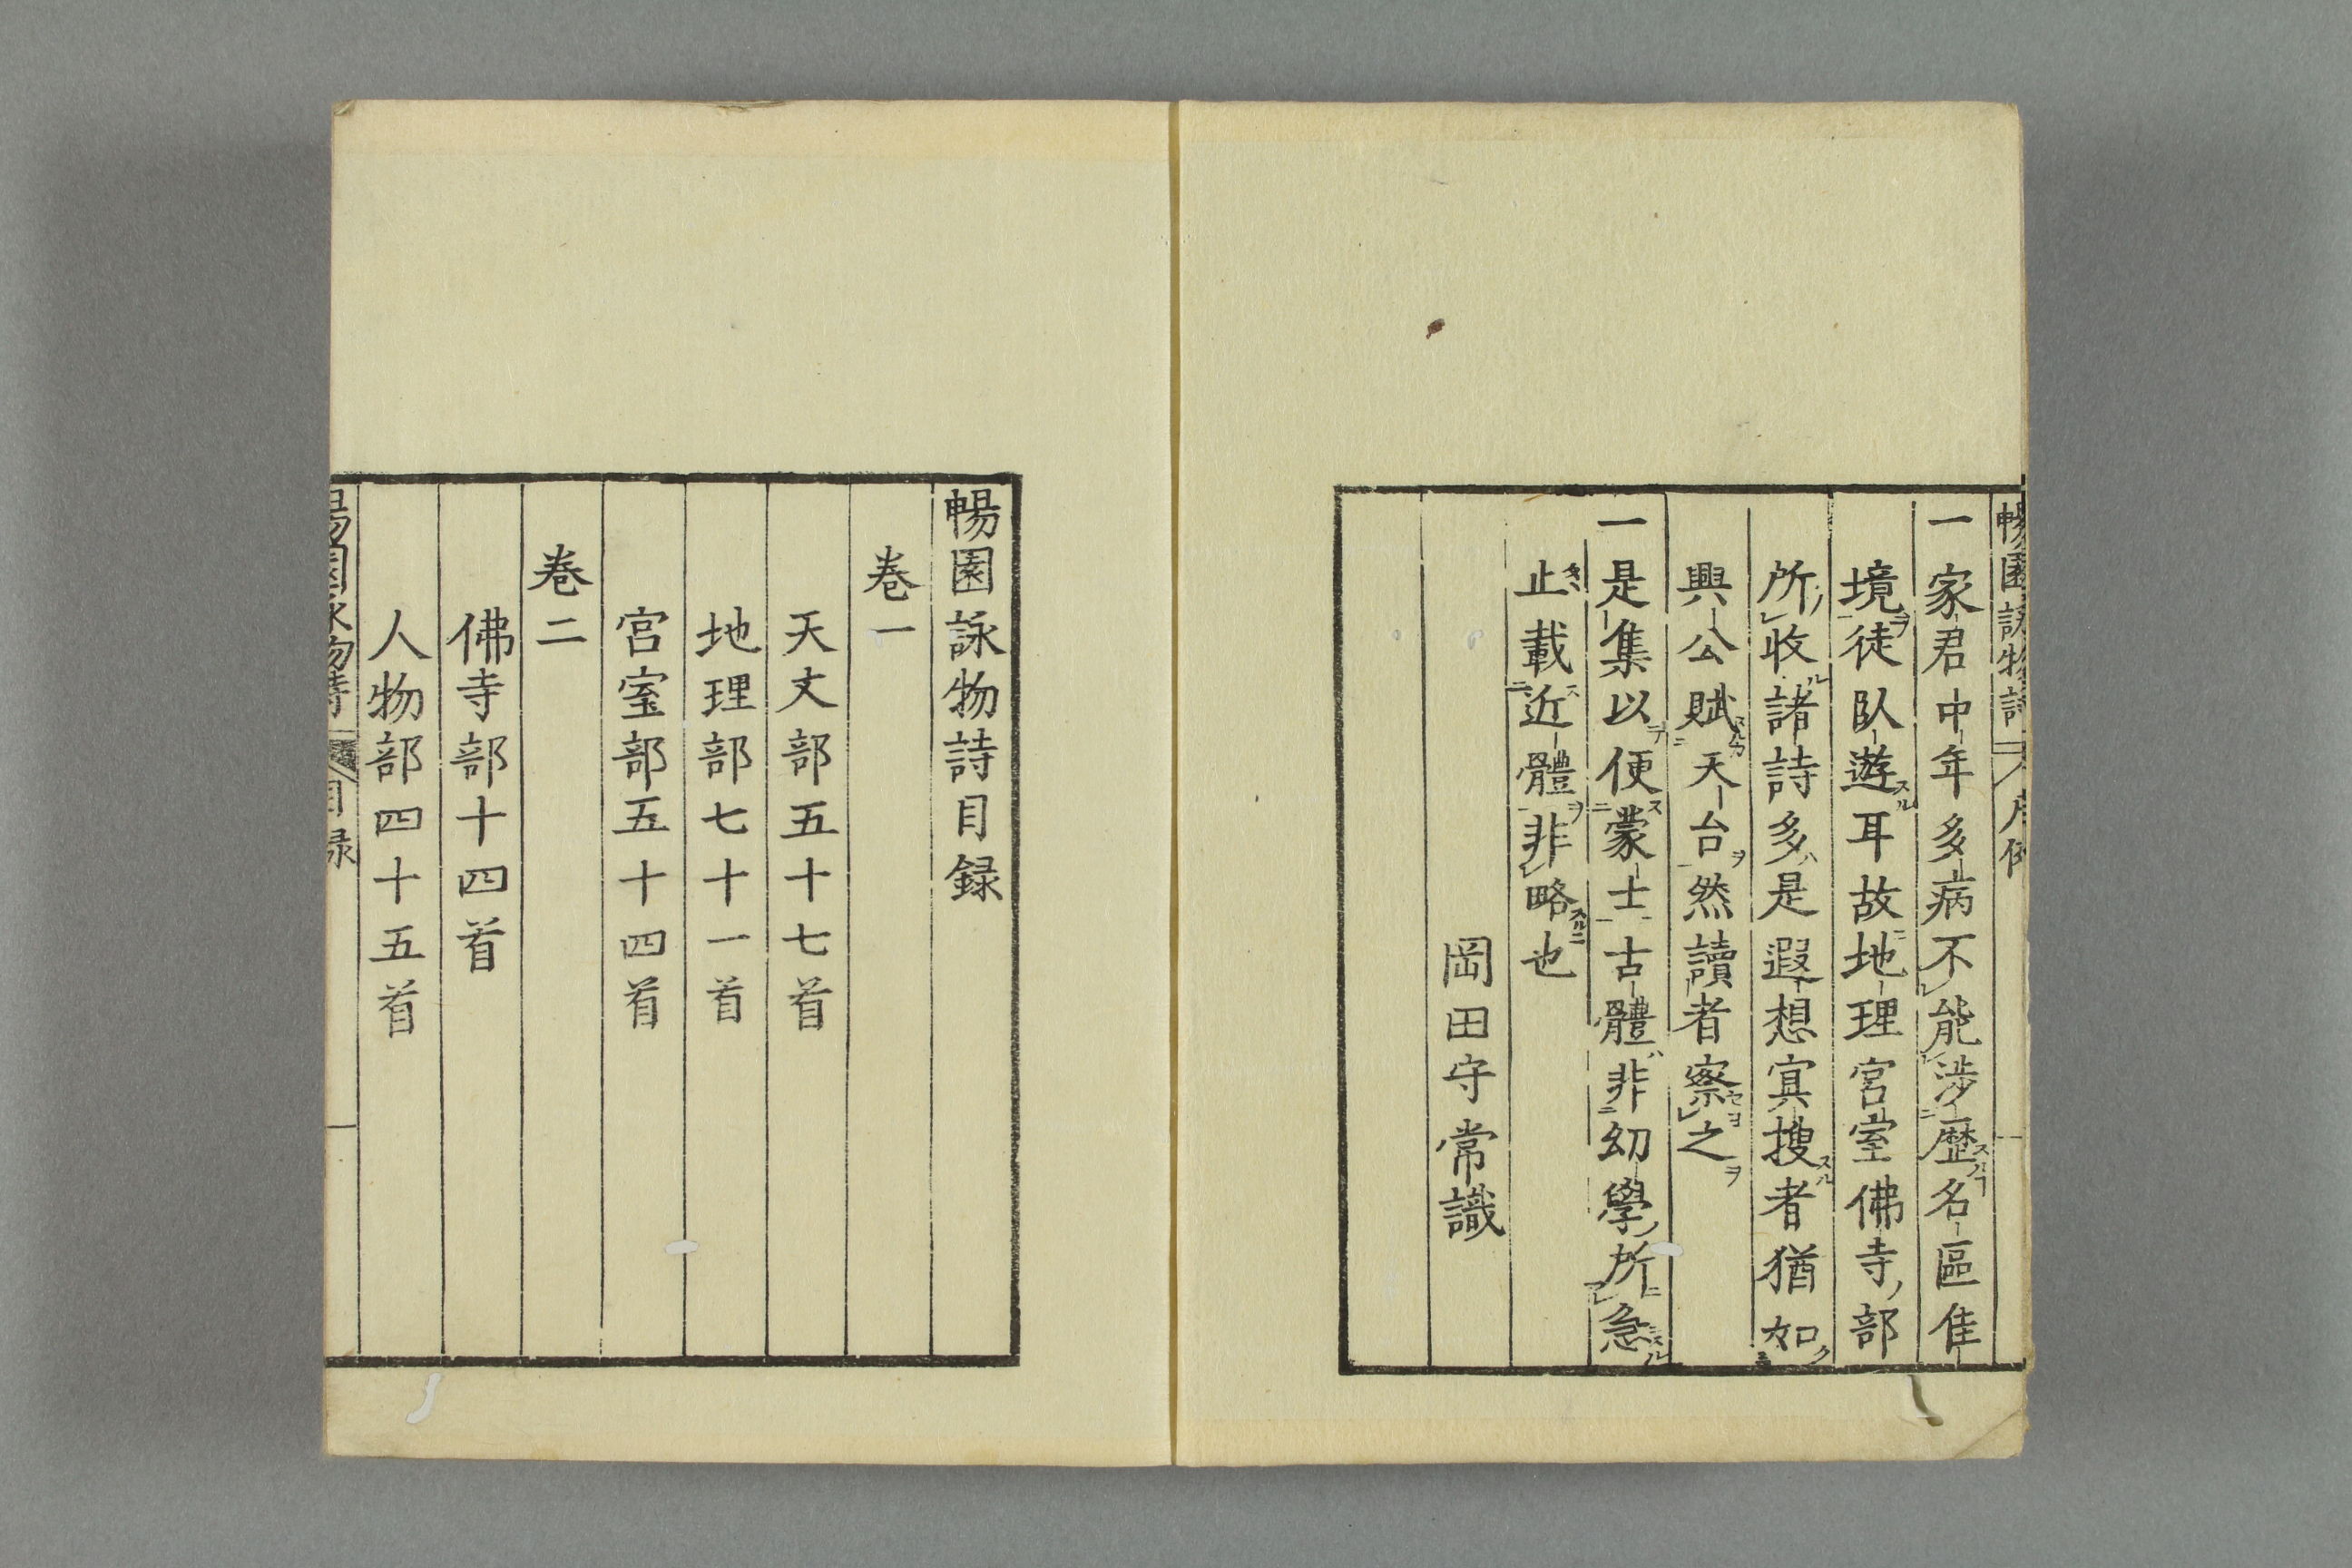 暢園詠物詩 凡例
一家君中年多病不能涉歷名區佳
境徒臥遊耳故地理宮室佛寺部
所收諸詩多是遐想寘搜者猶如
興公賦天台然讀者察之
一是集以便蒙士古體非幼學所急
止載近體非略也
岡田守常識
暢園詠物詩目録
卷一
天文部五十七首
地理部七十一首
宮室部五十四首
卷二
佛寺部十四首
人物部四十五首
暢園詠物詩 目録 一